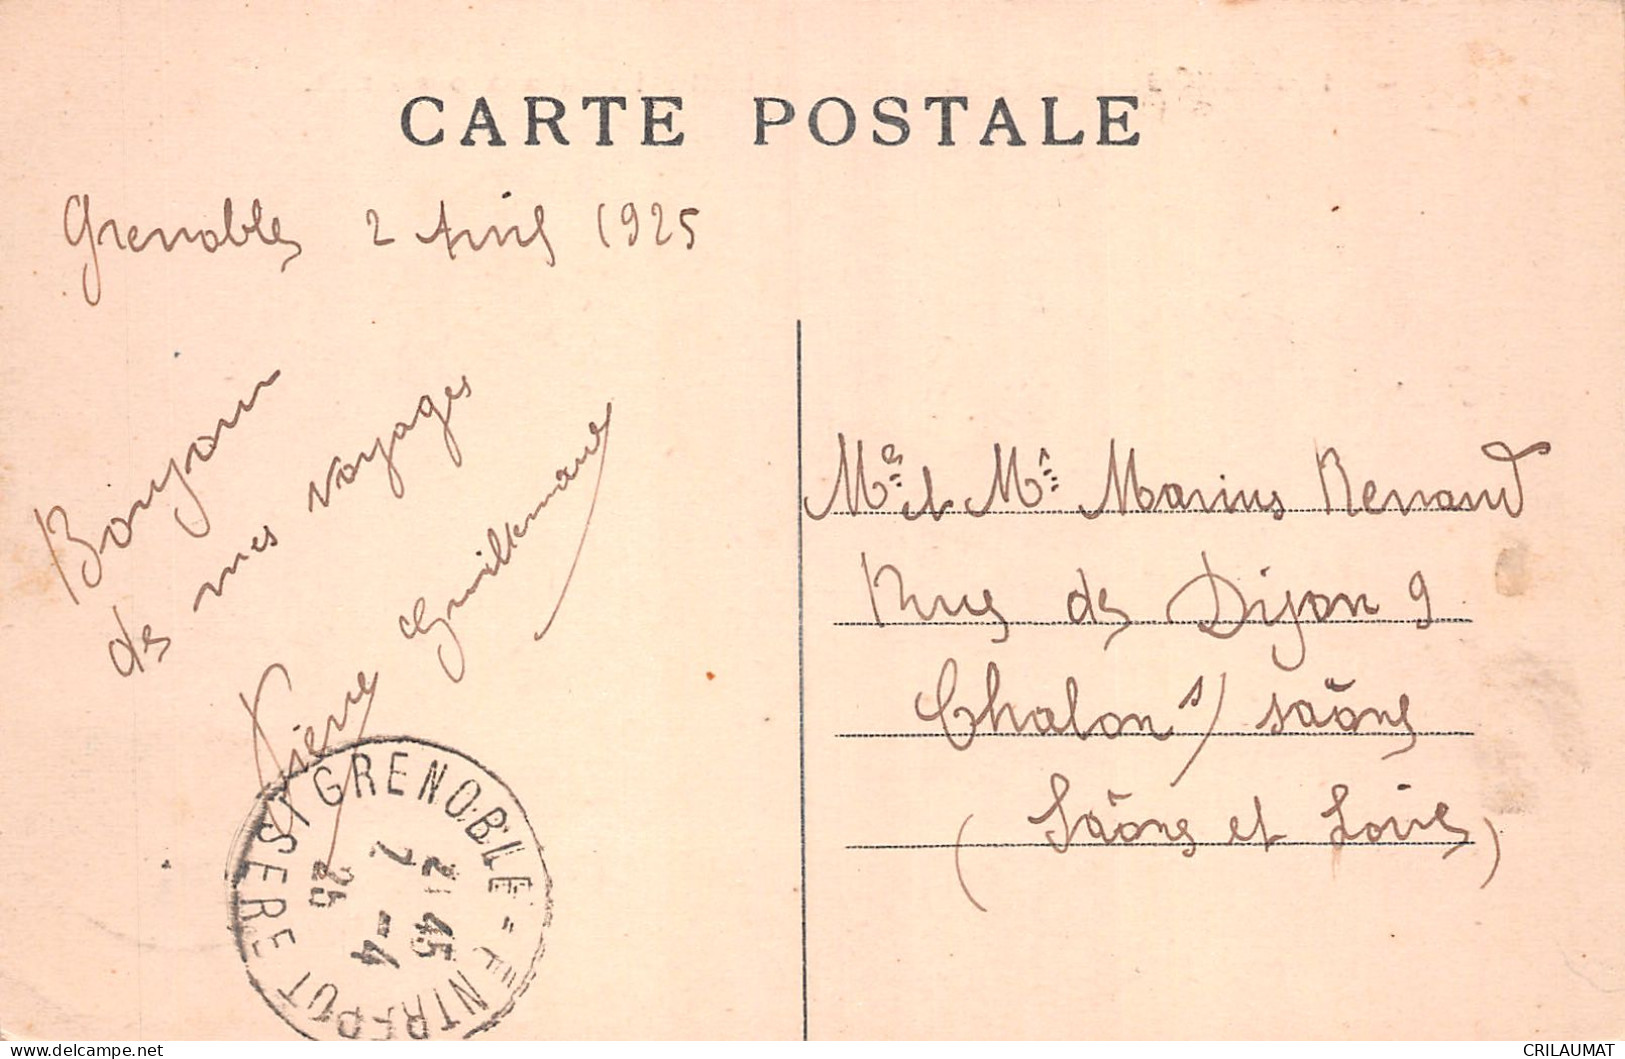 CARTE POSTALE
Grenoble 2 Avril 1925
Bonjour
de mes voyages
Pierre Guillemaud
Mr et Me Marius Renaud
Rue de Dijon 9
Chalon s/ Saône
(Saône et Loire)
GRENOBLE - ENTREPOT
21 45
7 -4
25
CRILAUMAT